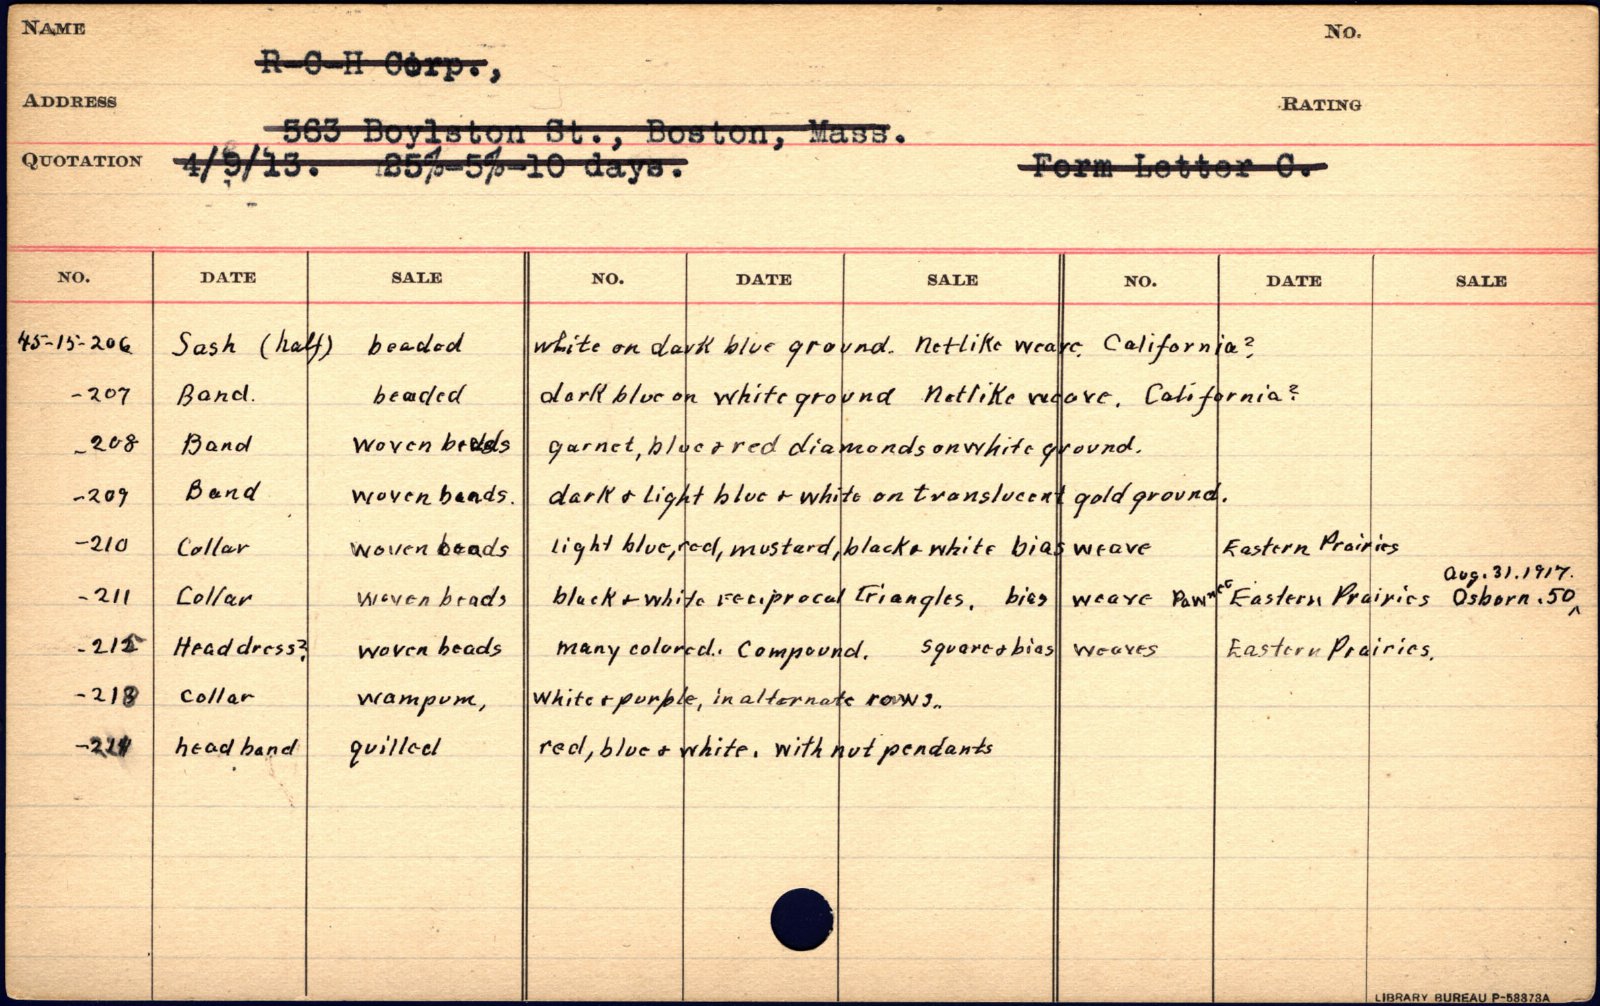 NAME
No.
R C H Corp.,
ADDRESS
RATING
563 Boylston St., Boston, Mass.
QUOTATION 4/9/13. 25%-5%-10 days. Form Letter C.
NO. DATE SALE NO. DATE SALE NO. DATE SALE
45-15-206 Sash (half) beaded white on dark blue ground. Netlike weave. California?
-207 Band. beaded dark blue on white ground Netlike weave. California?
-208 Band woven beads garnet, blue & red diamonds on white ground.
-209 Band woven beads. dark & light blue & white on translucent gold ground.
-210 Collar woven beads light blue, red, mustard, black & white bias weave Eastern Prairies
Aug. 31. 1917.
-211 Collar woven beads black & white reciprocal triangles. bias weave Eastern Prairies Osborn .50
-212 Headdress? woven beads many colored. Compound. square & bias weaves Eastern Prairies.
-213 Collar wampum, white & purple, in alternate rows.
-214 head band quilled red, blue & white. with nut pendants
LIBRARY BUREAU P-58873A